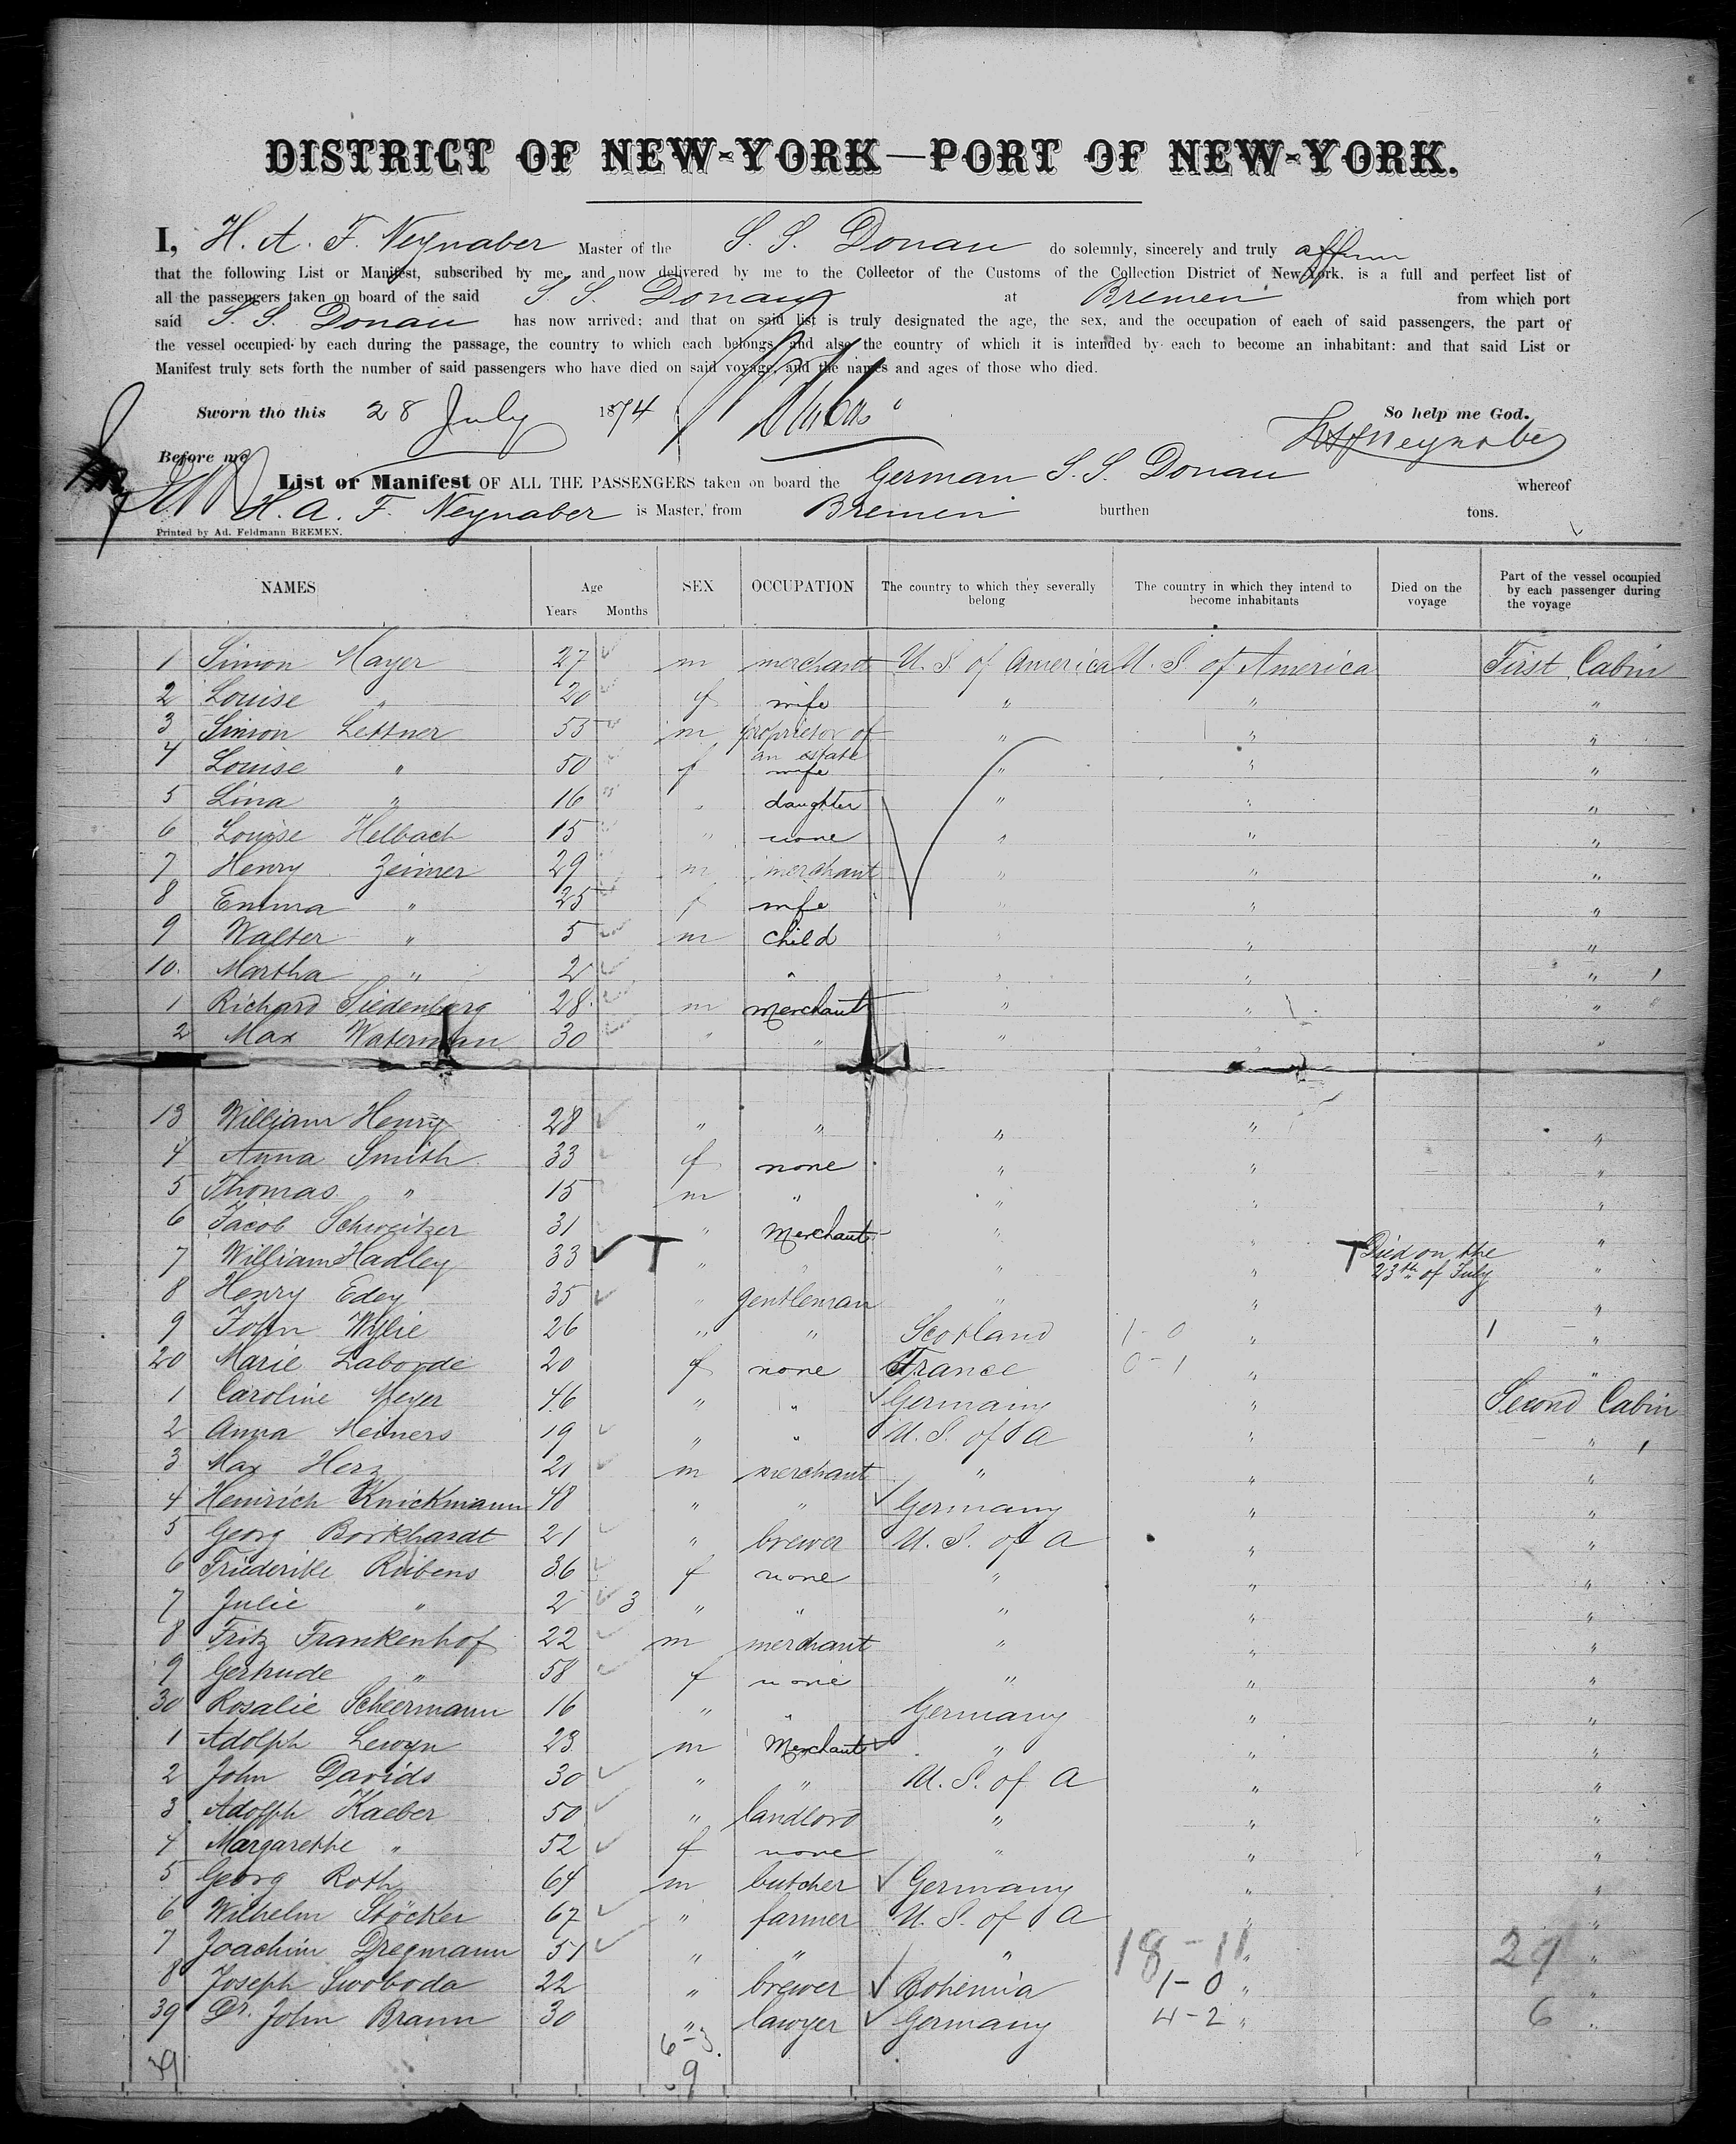 DISTRICT OF NEW-YORK—PORT OF NEW-YORK.
I, H. A. F. Neynaber Master of the S. S. Donau do solemnly, sincerely and truly affirm
that the following List or Manifest, subscribed by me, and now delivered by me to the Collector of the Customs of the Collection District of New-York. is a full and perfect list of
all the passengers taken on board of the said S. S. Donau at Bremen from which port
said S. S. Donau has now arrived: and that on said list is truly designated the age, the sex, and the occupation of each of said passengers, the part of
the vessel occupied by each during the passage, the country to which each belongs, and also the country of which it is intended by each to become an inhabitant: and that said List or
Manifest truly sets forth the number of said passengers who have died on said voyage, and the names and ages of those who died.
Sworn tho this 28 July 1874 So help me God.
Before me HAFNeynaber
List or Manifest OF ALL THE PASSENGERS taken on board the German S. S. Donau whereof
H. A. F. Neynaber is Master, from Bremen burthen tons.
Printed by Ad. Feldmann BREMEN.
NAMES Age Years Months SEX OCCUPATION The country to which they severally belong The country in which they intend to become inhabitants Died on the voyage Part of the vessel ocoupied by each passenger during the voyage
1 Simon Mayer 27 m merchant U. S. of America U. S. of America First Cabin
2 Louise " 20 f wife " " "
3 Simon Lettner 53 m proprietor of an estate " " "
4 Louise " 50 f wife " " "
5 Lina " 16 " daughter " " "
6 Louise Helbach 15 " none " " "
7 Henry Zeimer 29 m merchant " " "
8 Emma " 25 f wife " " "
9 Walter " 5 m child " " "
10. Martha " 2 " " " "
1 Richard Siedenberg 28 m merchant " " "
2 Max Waterman 30 " " " " "
13 William Henry 28 " " " " "
4 Anna Smith 33 f none " " "
5 Thomas " 15 m " " " "
6 Jacob Schweitzer 31 " Merchant " " "
7 William Hadley 33 " " " " Died on the 23th of July "
8 Henry Edey 35 " gentleman " " "
9 John Wylie 26 " " Scotland 1-0 " "
20 Marie Laborde 20 f none France 0-1 " "
1 Caroline Meyer 46 " " Germany " Second Cabin
2 Anna Meiners 19 " " U. S. of A " "
3 Max Herz 21 m merchant " " "
4 Heinrich Knickmann 48 " " Germany " "
5 Georg Borkhardt 21 " brewer U. S. of A " "
6 Friederike Rubens 36 f none " " "
7 Julie " 2 3 " " " " "
8 Fritz Frankenhof 22 m merchant " " "
9 Gertrude " 58 f none " " "
30 Rosalie Scheermann 16 " " Germany " "
1 Adolph Lewyn 23 m Merchant " " "
2 John Davids 30 " " U. S. of A " "
3 Adolph Kaeber 50 " landlord " " "
4 Margarethe " 52 f none " " "
5 Georg Roth 64 m butcher Germany " "
6 Wilhelm Stöcker 67 " farmer U. S. of A " "
7 Joachim Dregmann 51 " " " 18-11 " 29 "
8 Joseph Swoboda 22 " brewer Bohemia 1-0 " "
39 Dr. John Braun 30 " lawyer Germany 4-2 " 6 "
39 6-3
9